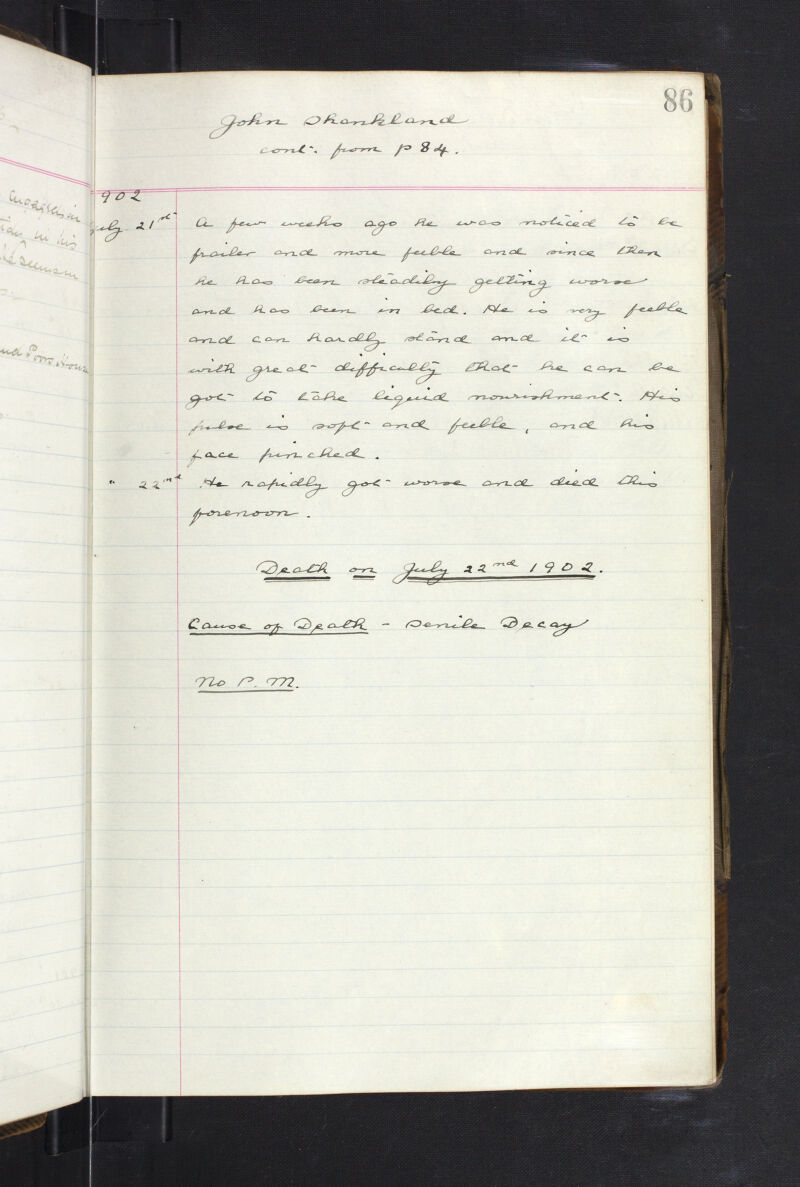 86
John Shankland
cont. from p 84.
1902
July 21st A few weeks ago he was noticed to be
frailer and more feeble and since then
he has been steadily getting worse
and has been in bed. He is very feeble
and can hardly stand and it is
with great difficulty that he can be
got to take liquid nourishment. His
pulse is soft and feeble, and his
face pinched.
" 22nd He rapidly got worse and died this
forenoon.
Death on July 22nd 1902.
Cause of Death - Senile Decay
No P. M.
in his
Poors House